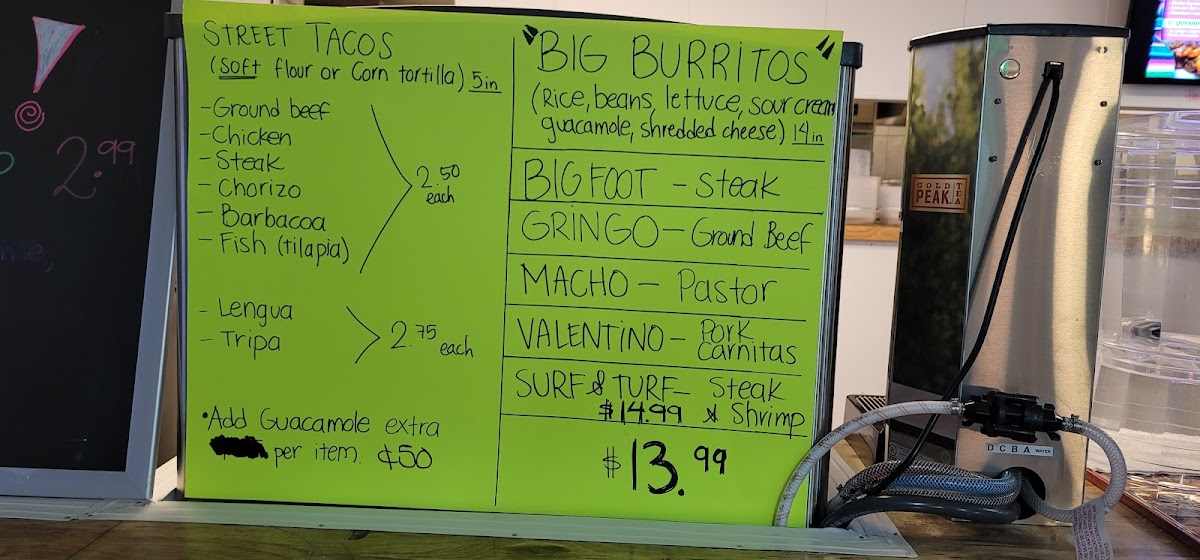 2.99
me,
STREET TACOS
(soft flour or Corn tortilla) 5in
- Ground beef
- Chicken
- Steak
- Chorizo
- Barbacoa
- Fish (tilapia)
2.50
each
- Lengua
- Tripa
2.75 each
• Add Guacamole extra
per item. ¢50
"BIG BURRITOS"
(Rice, beans, lettuce, sour cream
guacamole, shredded cheese) 14in
BIGFOOT - Steak
GRINGO - Ground Beef
MACHO - Pastor
VALENTINO - Pork
Carnitas
SURF & TURF - Steak
$14.99 & Shrimp
$13.99
GOLD
PEAK
TEA
DCBA WATER